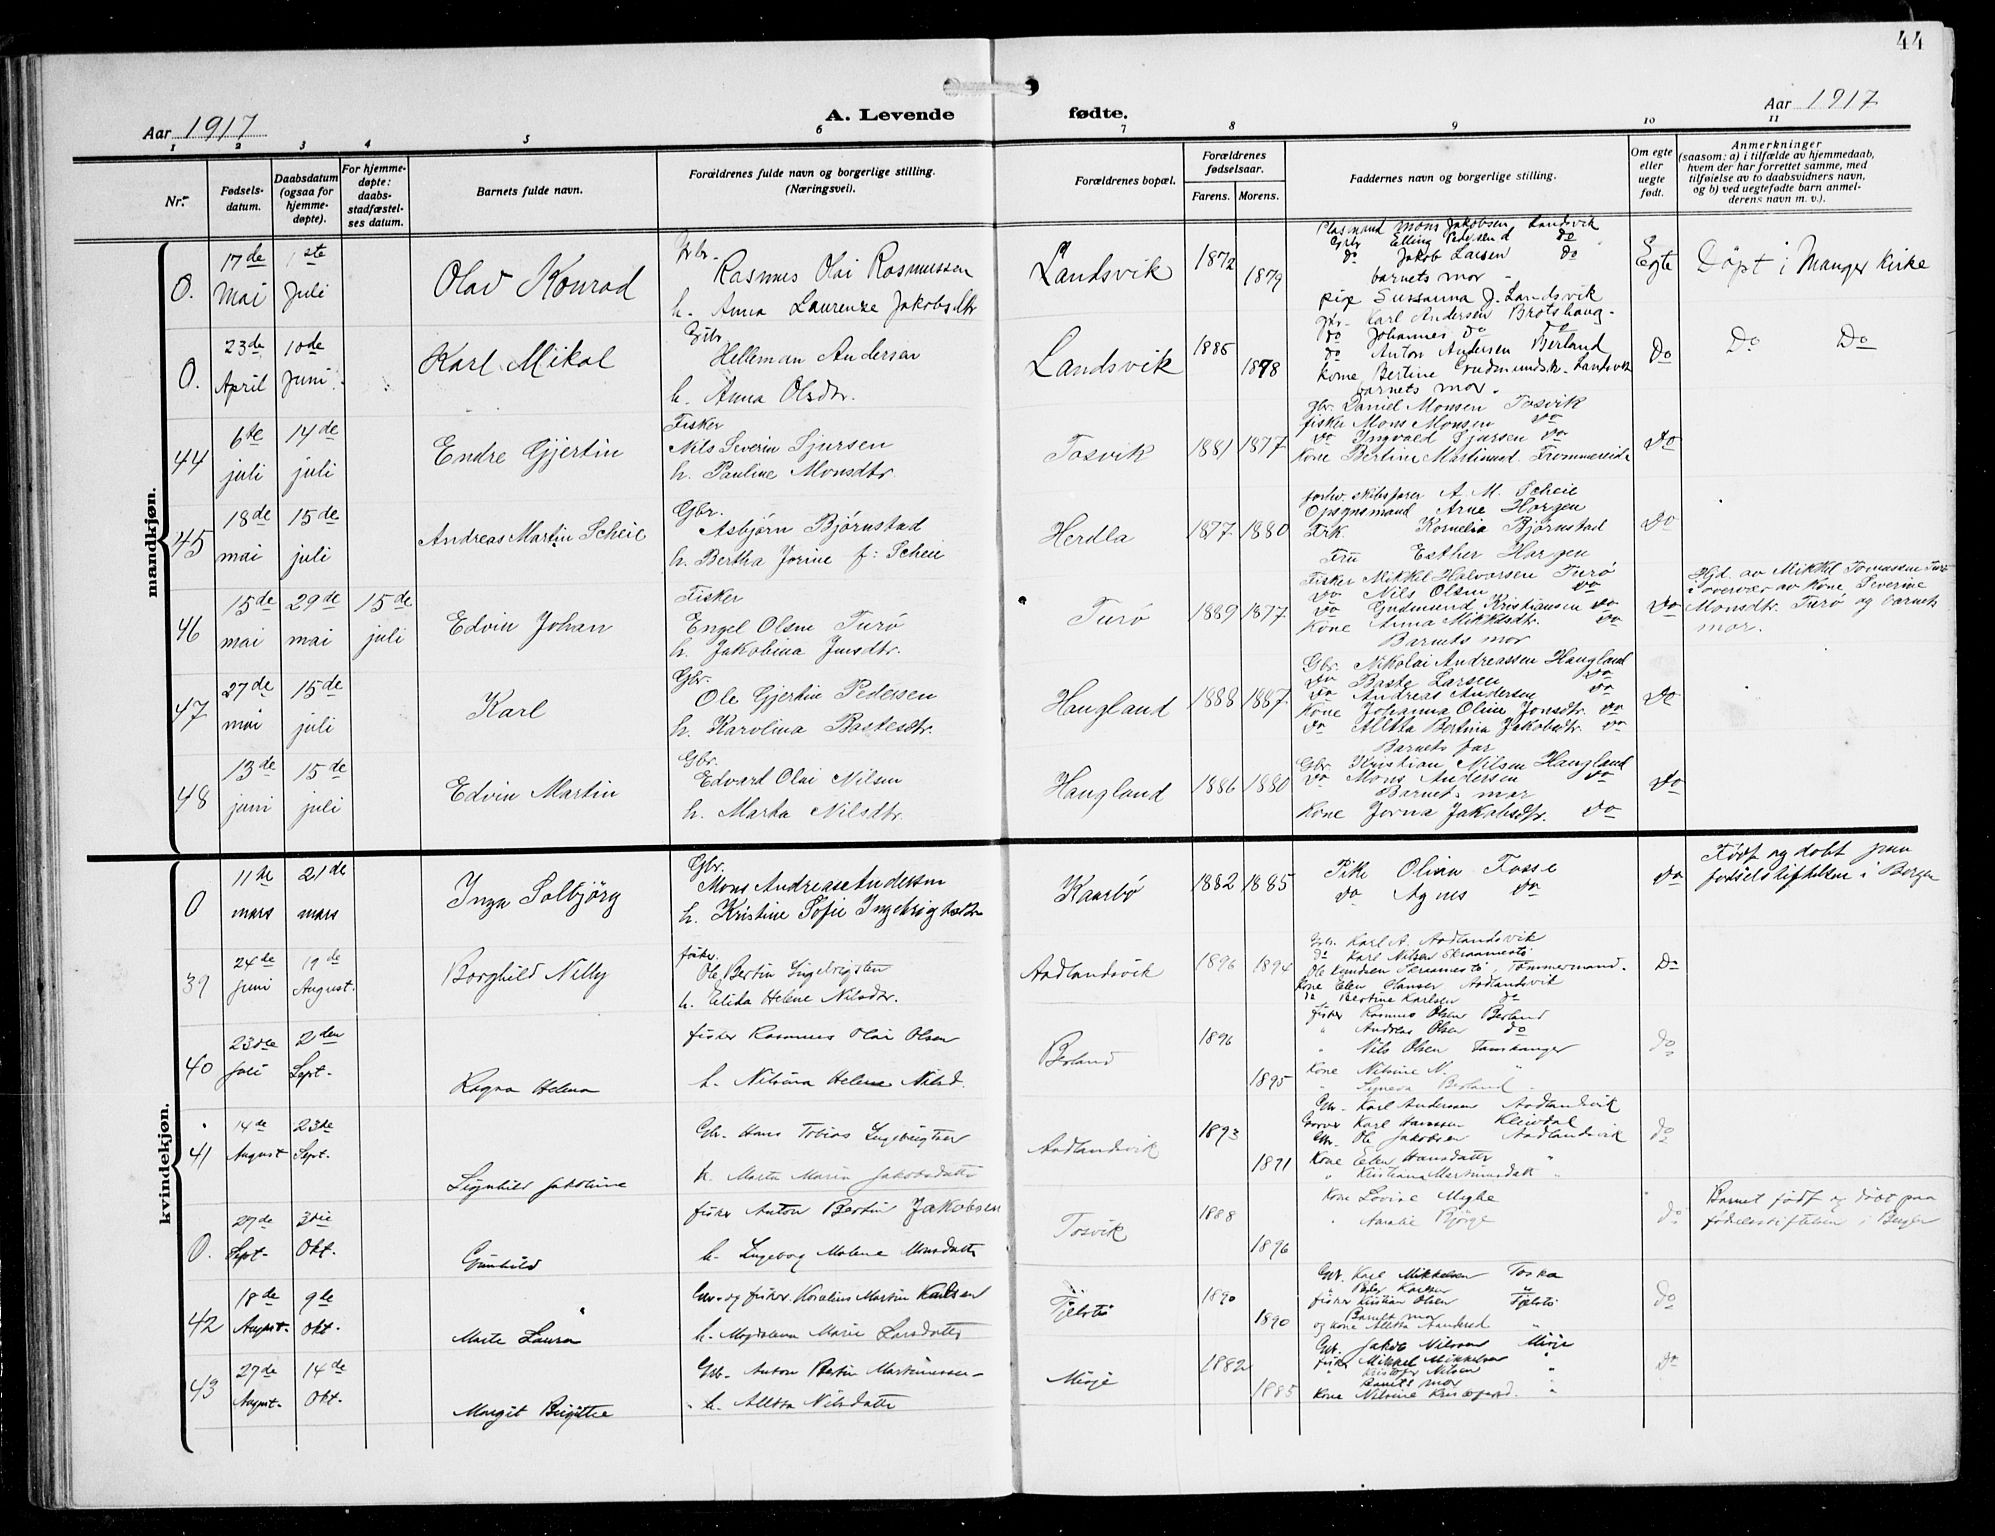 44
Aar 1917
A. Levende
fødte.
Aar 1917
1 2 3 4 5 6 7 8 9 10 11
Nr.
Fødsels-
datum.
Daabsdatum
(ogsaa for
hjemme-
døpte).
For hjemme-
døpte:
daabs-
stadfæstel-
ses datum.
Barnets fulde navn.
Forældrenes fulde navn og borgerlige stilling.
(Næringsvei).
Forældrenes bopæl.
Forældrenes
fødselsaar.
Farens. Morens.
Faddernes navn og borgerlige stilling.
Om egte
eller
uegte
født.
Anmerkninger
(saasom: a) i tilfælde av hjemmedaab,
hvem der har forrettet samme, med
tilføielse av to daabsvidners navn,
og b) ved uegtefødte barn anmel-
derens navn m. v.).
mandkjøn.
0. 17de Mai 1ste Juli
Olav Konrad
Gbr.
Rasmus Olai Rasmussen
h. Anna Laurenze Jakobsdtr
Landsvik
1872 1879
Mons Jakobsen Landsvik
Gbr Elling Pedersen do
do Jakob Larsen do
barnets mor
pige Sussanna J. Landsvik
Egte
Döpt i Manger kirke
0. 23de April 10de Juni
Karl Mikal
Gbr
Helleman Andersen
h. Anna Olsdtr.
Landsvik
1885 1878
gbr. Karl Andersen Brotshaug
do Johannes do do
do Anton Andersen Berland
kone Bertine Gudmundsd. Landsvik
barnets mor.
Do
Do Do
44 6te juli 14de juli
Endre Gjertin
Fisker
Nils Severin Sjursen
h. Pauline Monsdtr.
Tosvik
1881 1877
gbr. Daniel Monsen Tosvik
fisker Mons Monsen do
do Ingvald Sjursen do
Kone Bertine Martinusd. Trommereide
Do
45 18de mai 15de juli
Andreas Martin Scheie
Gbr.
Asbjørn Bjørnstad
h. Bertha Jorine f: Scheie
Herdla
1877 1880
forhv. skibsfører A. M. Scheie
Opsynsmand Arne Horgen
Frk. Kornelia Bjørnstad
Fru Esther Horgen
Do
46 15de mai 29de mai 15de juli
Edvin Johan
Fisker
Engel Olsen Turö
h. Jakobina Jensdtr.
Turö
1889 1877
Fisker Mikkel Halvorsen Turö
do Nils Olsen do
do Gudmund Kristiansen do
Kone Anna Mikkelsdtr. do
Barnets mor
Do
Hjd. av Mikkel Tomassen Turö
i overvær av kone Severine
Monsdtr. Turö og barnets
mor.
47 27de mai 15de juli
Karl
Gbr.
Ole Gjertin Pedersen
h. Karolina Bastesdtr.
Haugland
1888 1887
Gbr. Nikolai Andreassen Haugland
do Baste Larsen do
do Andreas Andersen do
Kone Johanna Oline Jonsdtr. do
do Alletta Bertina Jakobsdtr. do
Barnets far
Do
48 13de juni 15de juli
Edvin Martin
Gbr.
Edvard Olai Nilsen
h. Marta Nilsdtr.
Haugland
1886 1880
Gbr. Kristian Nilsen Haugland
do Mons Andersen do
Barnets mor
Kone Jorna Jakobsdtr. do
Do
kvindekjøn.
0 11te mars 21de mars
Inga Solbjörg
Gbr.
Mons Andreas Andersen
h. Kristine Sofie Ingebrigtsdtr
Kaarbø
1882 1885
Pike Olivia Fosse
do Agnes do
do
Født og døbt paa
fødselsstiftelsen i Bergen
39 24de Juni 19de August.
Borghild Nelly
fisker.
Ole Bertin Ingebrigtsen
h. Elida Helene Nilsdtr.
Aadlandsvik
1896 1894
Gbr. Karl A. Aadlandsvik
do Karl Nilsen Skraamestö
Ole Knudsen Skraamestö, Tömmermand.
Kone Elen Hansen Aadlandsvik
do Bertine Karlsen do
Do
40 23de Juli 2den Sept.
Ragna Helena
fisker Rasmus Olai Olsen
h. Nilsina Helene Nilsd.
Berland
1896 1895
fisker Rasmus Olsen Berland
" Andreas Olsen do
" Nils Olsen
Kone Nilsine N. "
" Synneva Berland
do
41 14de August 23de Sept.
Signhild Jakobine
Gbr. Hans Tobias Ingebrigtsen
h. Marta Marin Jakobsdatter
Aadlandsvik
1893 1891
Gbr. Karl Andersen Aadlandsvik
Karl Hanssen Kleivdal
Gbr. Ole Jakobsen Aadlandsvik
Kone Elen Hansdatter "
" Kristiana Martinusdatt "
do
0. 27de Sept. 3die Okt.
Gunhild
fisker Anton Bertin Jakobsen
h. Ingeborg Malene Monsdatter
Tosvik
1888 1896
Kone Lovise Mighe
" Amalie Bjørge
do
Barnet født og døbt paa
fødselsstiftelsen i Bergen
42 18de August. 9de Okt.
Marte Laura
Gbr. og fisker Kornelius Martin Karlsen
h. Magdalena Marie Larsdatter
Tjelstö
1890 1890
Gbr. Karl Mikkelsen Toska
" Karlsen "
fisker Kristian Olsen Tjelstö
Barnets mor
og kone Alletta Andersd "
do
43 27de August. 14de Okt.
Margit Birgitte
Gbr. Anton Bertin Martinussen
h. Alletta Nilsdatter
Misje
1882 1885
Gbr. Jakob Nilssen Misje
fisker Mikkel Mikkelsen "
" Kristofer Nilsen "
Barnets mor
Kone Nilsine Kristofersd. "
Do